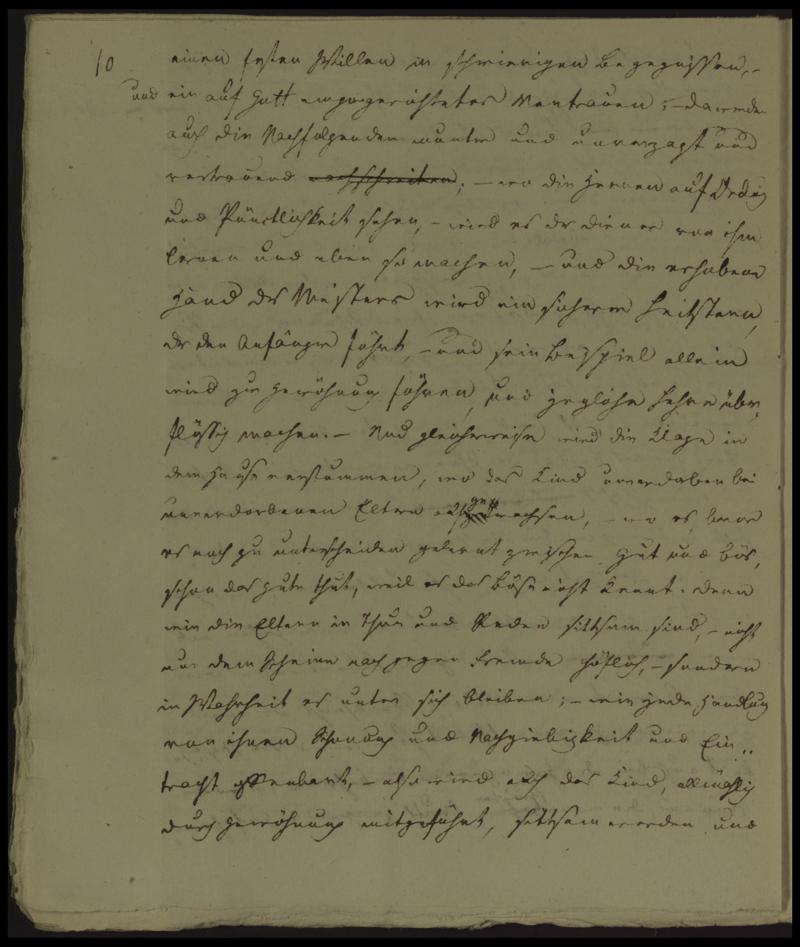 10 einen festen Willen in schwierigen Begegnissen, -
und ein auf Gott emporgerichtetes Vertrauen; - da werden
auch die Nachfolgenden munter und unverzagt und
vertrauend nachschreiten; - wo die Herren auf Ordng
und Pünctlichkeit sehen, - wird es der Diener von ihm
lernen und eben so machen, - und die erhabene
Hand des Meisters wird ein sicherer Leitstern,
der den Anfänger führt, - und sein Beyspiel allein
wird zur Gewöhnung führen, und jegliche Lehre über,
flüssig machen. - Und gleicherweise wird die Klage in
dem Hause verstummen, wo das Kind unverdorben bei
unverdorbenen Eltern aufgewachsen, - wo es, bevor
es noch zu unterscheiden gelernt zwischen Gut und bös,
schon das gute thut, weil es das Böse nicht kennt. Denn
wie die Eltern in Thun und Reden sittsam sind, - nicht
nur dem Scheine nach gegen Fremde höflich, - sondern
in Wahrheit es unter sich bleiben; - wie jede Handlung
von ihnen Schonung und Nachgiebigkeit und Ein..
tracht offenbart, - also wird auch das Kind, allmählig
durch Gewöhnung mitgeführt, sittsam werden und